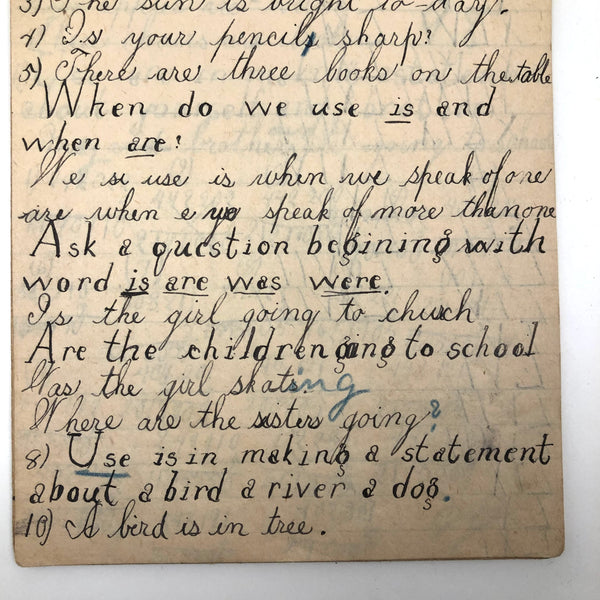 3) The sun is bright to-day.
4) Is your pencil, sharp?
5) There are three books on the table
When do we use is and
when are?
We si use is when we speak of one
are when e ye speak of more than one
Ask a question begining with
word is are was were.
Is the girl going to chuch
Are the children going to school
Was the girl skating
Where are the sisters going?
8) Use is in making a statement
about a bird a river a dog.
10) A bird is in tree.